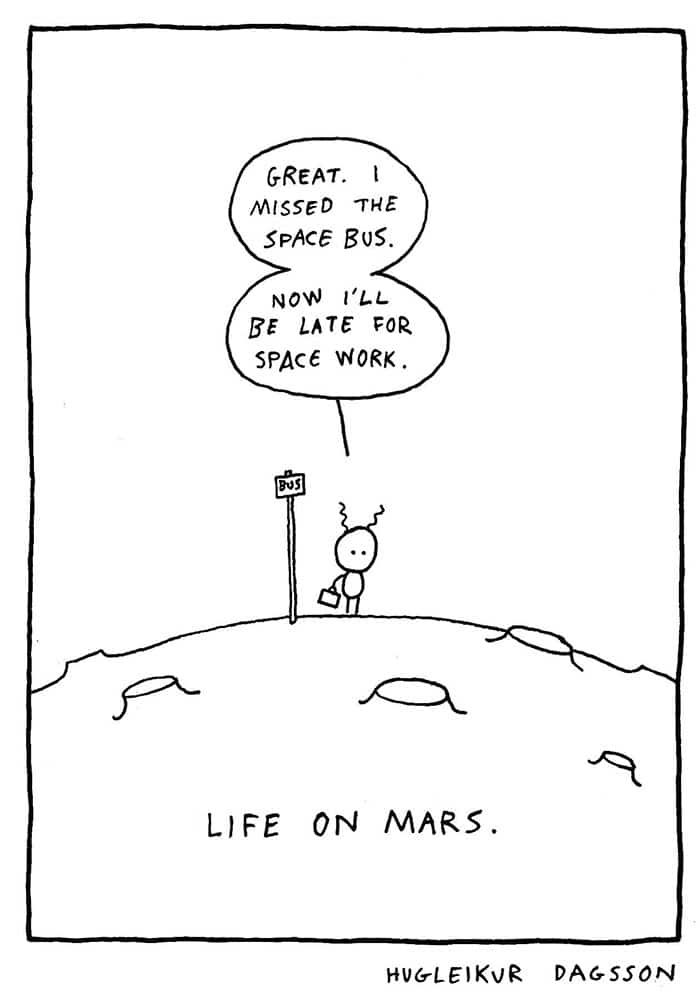 GREAT. I
MISSED THE
SPACE BUS.
NOW I'LL
BE LATE FOR
SPACE WORK.
BUS
LIFE ON MARS.
HUGLEIKUR DAGSSON